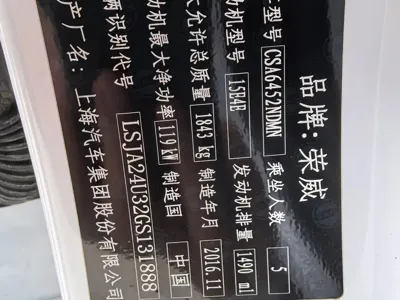 品牌:荣威
车型号 CSA6452NDMN 乘坐人数 5
动机型号 15E4E 发动机排量 1490 ml
大允许总质量 1843 kg 制造年月 2016.11
动机最大净功率 119 kW 制造国 中国
辆识别代号 LSJA24U32GS131888
产厂名:上海汽车集团股份有限公司